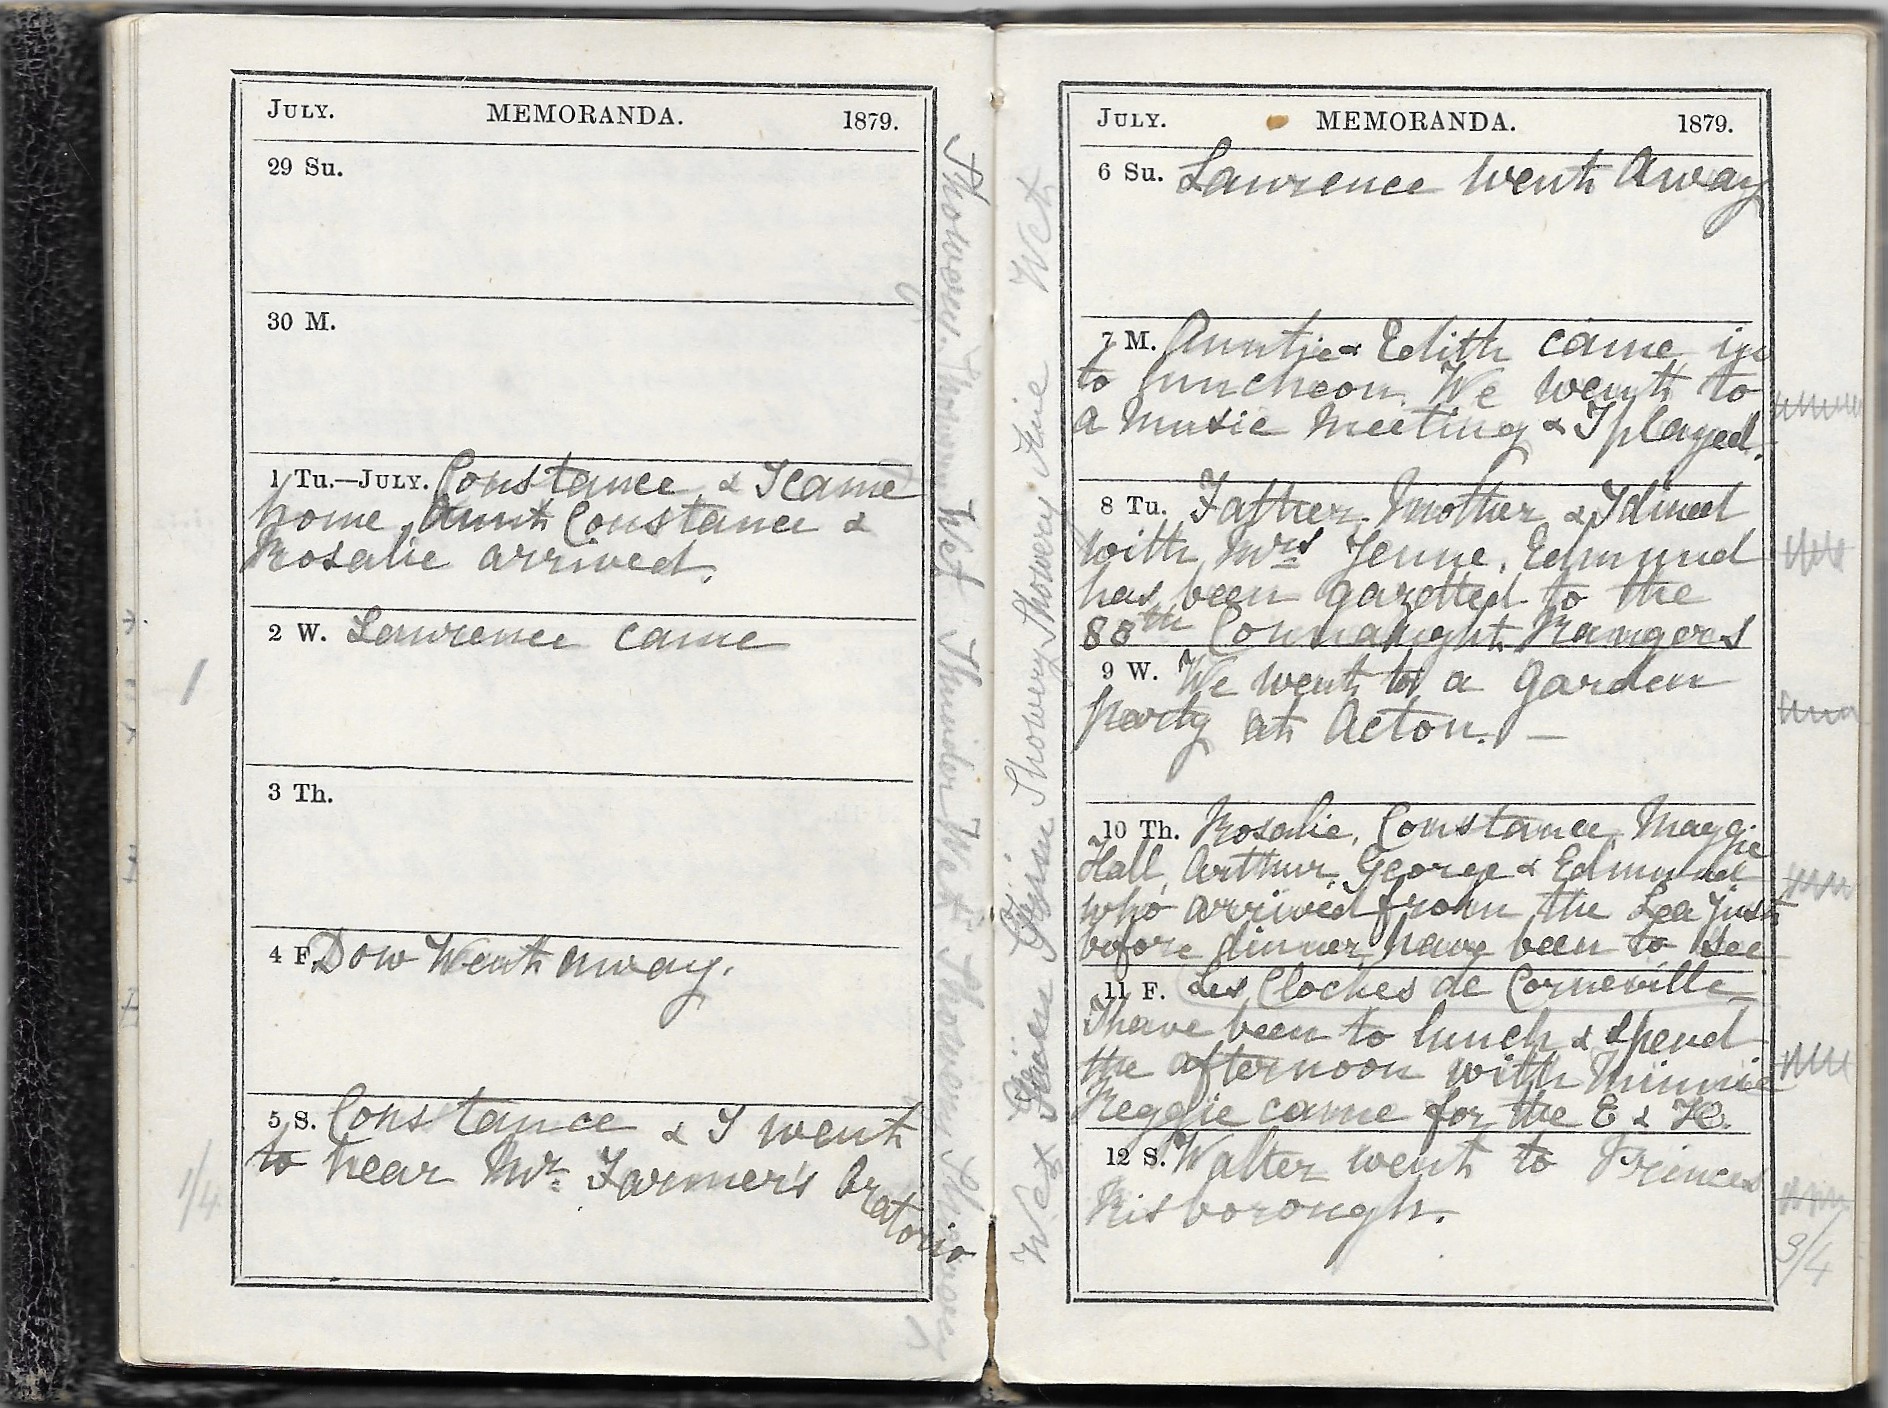 JULY. MEMORANDA. 1879.
29 Su.
30 M.
1 Tu.—JULY. Constance & I came
home, Aunt Constance &
Rosalie arrived.
2 W. Lawrence came
3 Th.
4 F. Dow Went away.
5 S. Constance & I went
to hear Mr. Farmer's Oratorio
1/4
Showery. Wet Thunder Wet Showery
JULY. MEMORANDA. 1879.
6 Su. Lawrence went Away
7 M. Auntie & Edith came in
to luncheon. We went to
a Music Meeting & I played.
8 Tu. Father, Mother & I dined
with Mrs Jenne, Edmund
has been gazetted to the
88th Connaught Rangers
9 W. We went to a garden
party at Acton. —
10 Th. Rosalie, Constance, Maggie
Hall, Arthur, George & Edmund
who arrived from the Lea just
before dinner, have been to see
11 F. Les Cloches de Corneville
I have been to lunch & spend
the afternoon with Minnie
Reggie came for the E & H.
12 S. Walter went to Princes
Risborough.
3/4
Wet Fine Showery Showery Fine Wet